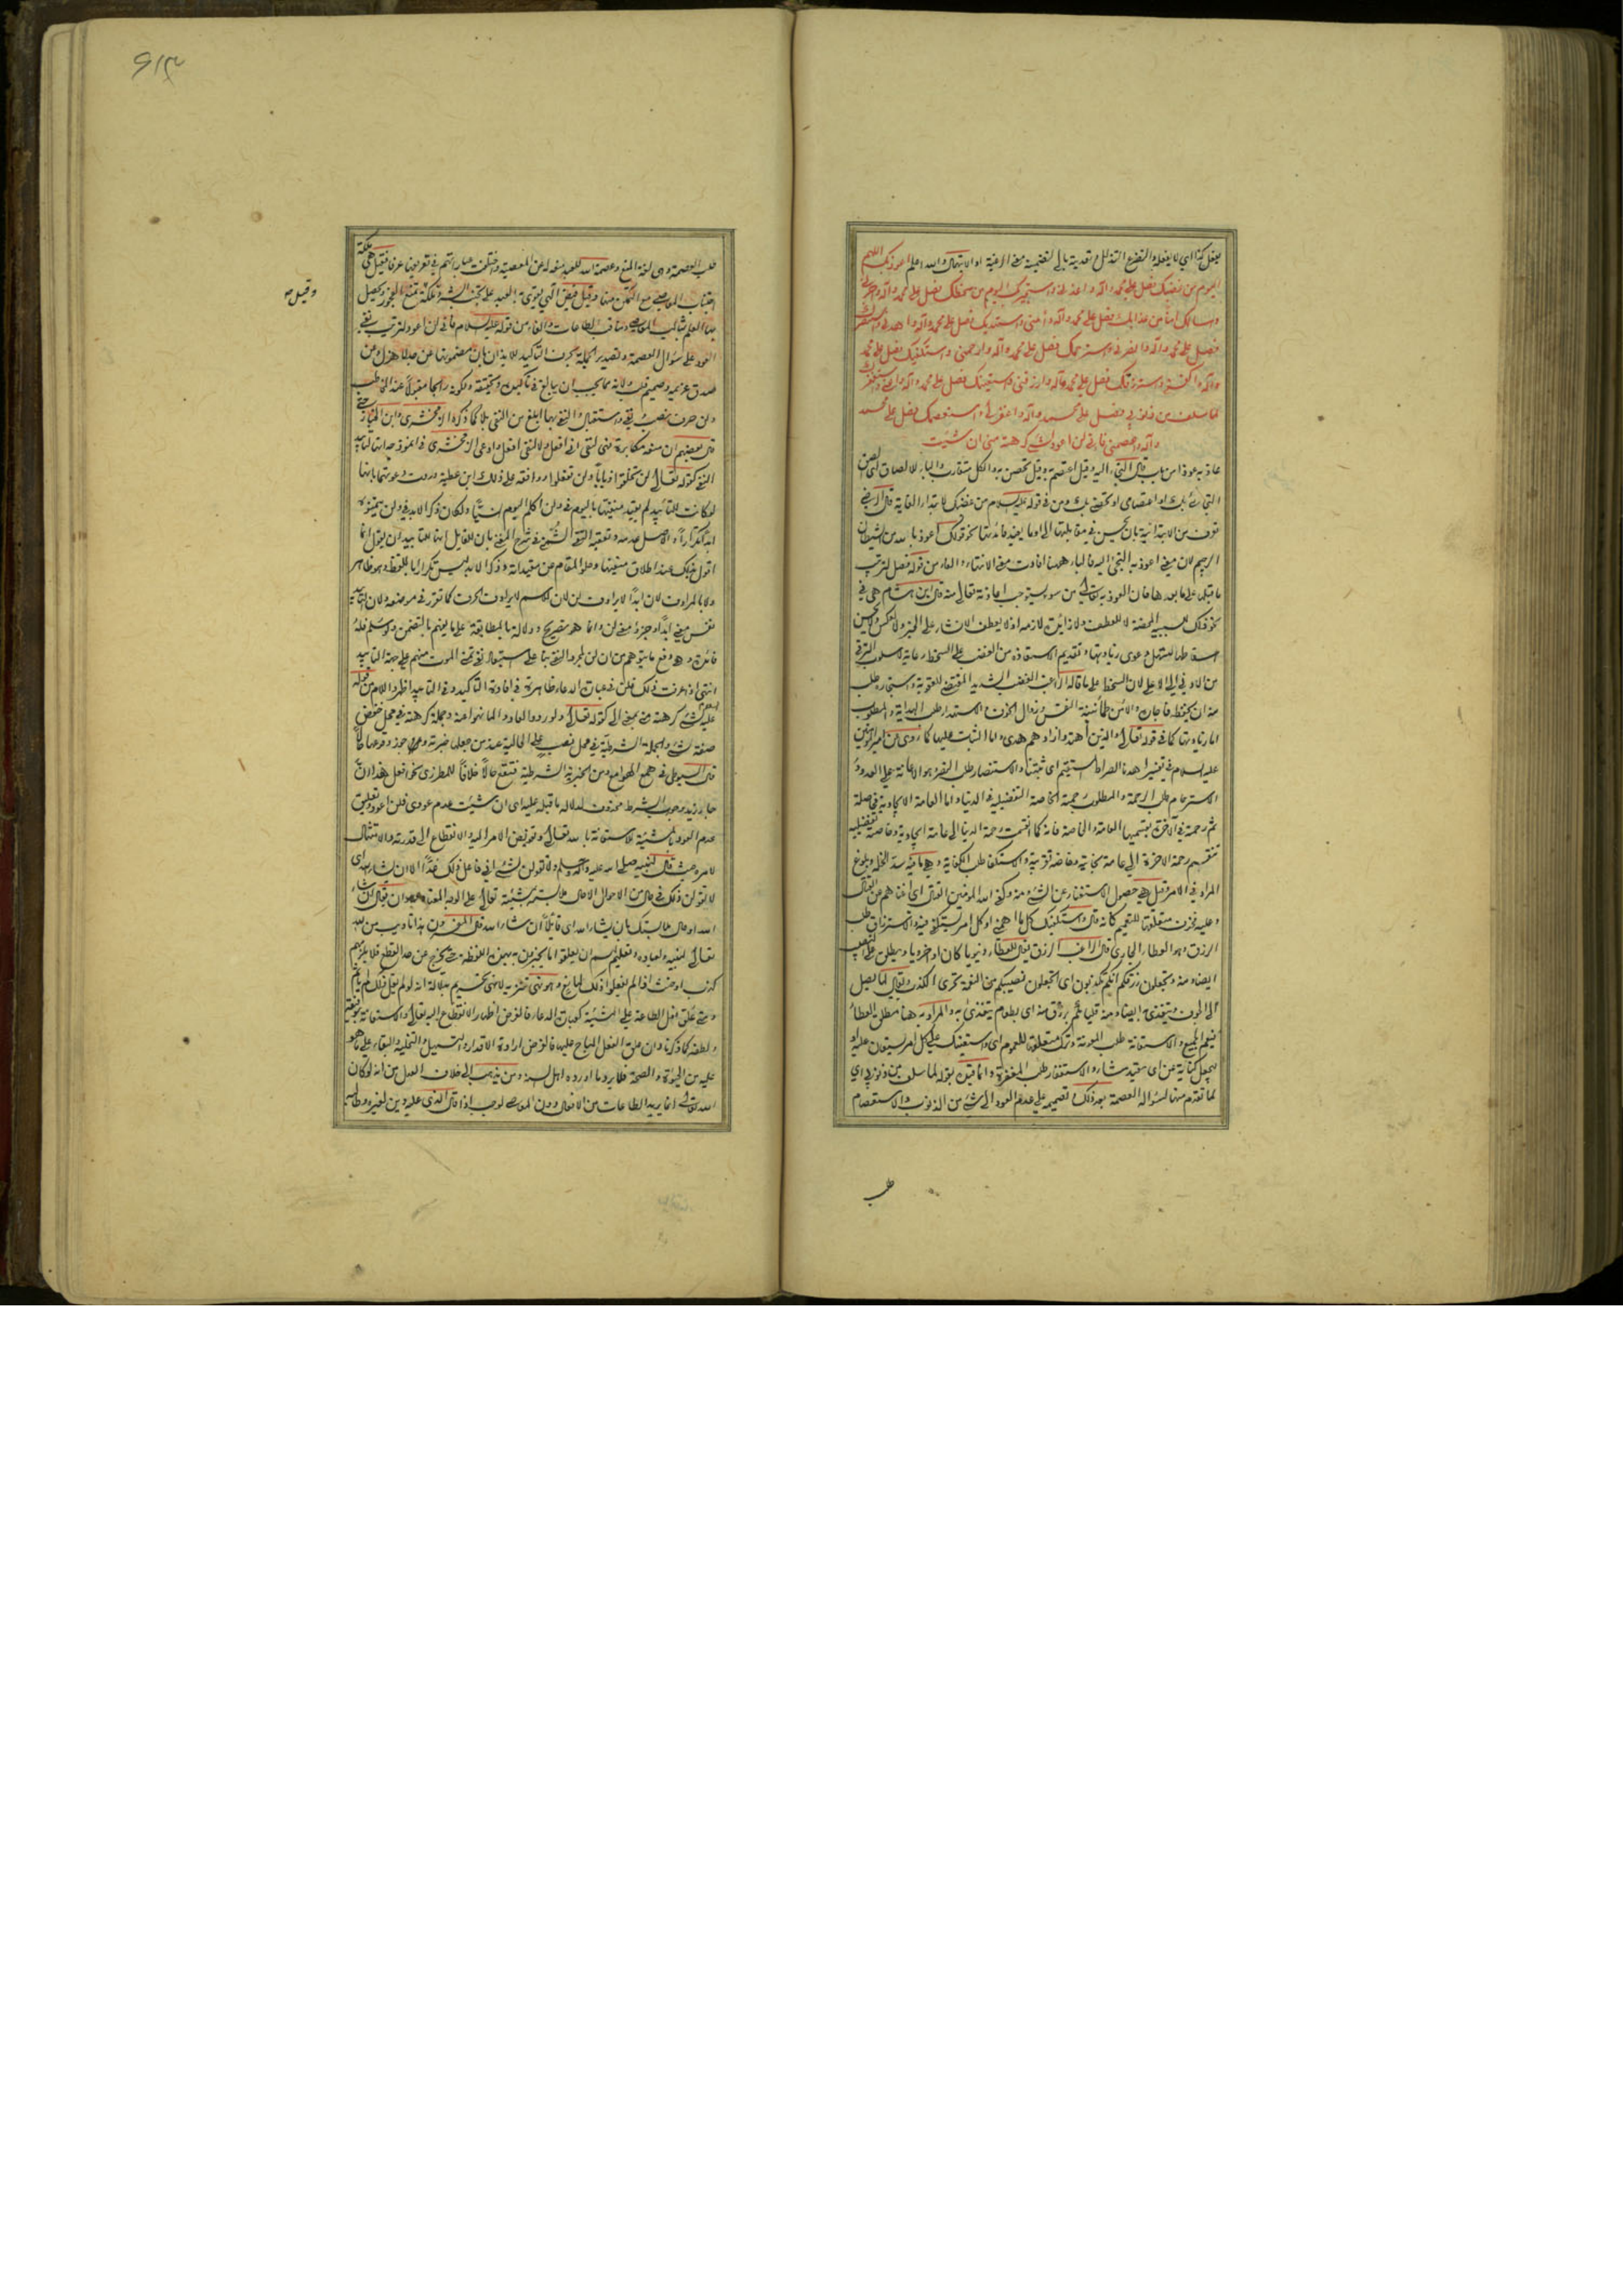 يفعل كذا اي لا يفعله والتضرع التذلل وتعديته بالى لتضمينه معنى الرغبة او الابتهال والله اعلم اللهم اعوذ بك
اليوم من غضبك فصل على محمد وآله واعذني واستجير بك اليوم من سخطك فصل على محمد وآله واجرني
واسألك امنا من عذابك فصل على محمد وآله وآمني واستهديك فصل على محمد وآله واهدني واستنصرك
فصل على محمد وآله وانصرني واسترحمك فصل على محمد وآله وارحمني واستكفيك فصل على محمد
وآله واكفني واسترزقك فصل على محمد وآله وارزقني واستعينك فصل على محمد وآله واعني واستغفرك
لما سلف من ذنوبي فصل على محمد وآله واغفر لي واستعصمك فصل على محمد
وآله واعصمني فاني لن اعود لشيء كرهته مني ان شئت
عاذ به عوذا من باب قال التجأ اليه وقيل اعتصم به وقيل تحصن به والكل متقارب والباء للالصاق اي الصق
التجائي بك او اعتصامي او تحصني بك ومن في قوله عليه السلام من غضبك لابتداء الغاية قال الرضي
تعرف من الابتدائية بان يحسن في مقابلتها الى او ما يفيد فائدتها نحو قولك اعوذ بالله من الشيطان
الرجيم لان معنى اعوذ به التجئ اليه فالباء ههنا افادت معنى الانتهاء والفاء من قوله فصل لترتيب
ما قبلها على ما بعدها فان العوذ به تعالى من سوء يستوجب اعاذته تعالى منه قال ابن هشام هي في
من الادنى الى الاعلى لان السخط على ما قاله الراغب الغضب الشديد المقتضي للعقوبة واستجاره طلب
منه ان يحفظه فاجاره والامن طمأنينة النفس وزوال الخوف والاستهداء طلب الهداية والمطلوب
اما زيادتها كما في قوله تعالى والذين اهتدوا زادهم هدى واما الثبات عليها كما روي عن امير المؤمنين
عليه السلام في تفسير اهدنا الصراط المستقيم اي ثبتنا والاستنصار طلب النصرة وهو الاعانة على العدو و
الاسترحام طلب الرحمة والمطلوب رحمته الخاصة التفضيلية في الدنيا واما العامة الايجادية فحاصلة
ثم رحمته في الآخرة بقسميها العامة والخاصة فانه كما انقسمت رحمة الدنيا الى عامة ايجادية وخاصة تفضيلية
تنقسم رحمة الآخرة الى عامة نجاتية وخاصة قربية والاستكفاء طلب الكفاية وهي ما فيه سد الخلة وبلوغ
المراد في الامر وقيل هي حصول الاستغناء عن الشيء ومنه وكفى الله المؤمنين القتال اي اغناهم عن القتال
وعليه فحذف متعلقها للتعميم كانه قال واستكفيك كل ما اهمني او كل امر يستكفى فيه والاسترزاق طلب
الرزق وهو العطاء الجاري قال الراغب الرزق يقال للعطاء دنيويا كان او اخرويا ويطلق على النصيب
ايضا ومنه وتجعلون رزقكم انكم تكذبون اي اتجعلون نصيبكم من النعمة تحري الكذب ويقال لما يصل
الى الجوف ويتغذى به ايضا ومنه فليأتكم برزق منه اي بطعام يتغذى به والمراد به هنا مطلق العطاء
فيعم الجميع والاستعانة طلب المعونة وترك متعلقها للعموم اي واستعينك على كل امر يستعان عليه او
ليجعل كناية عن اي مقيد شاء والاستغفار طلب المغفرة وانما قيد بقوله لما سلف من ذنوبي اي
لما تقدم منها لسؤاله العصمة بعد ذلك وتصميمه على عدم العود الى شيء من الذنوب والاستعصام
طلب
طلب العصمة وهي لغة المنع وعصمة الله للعبد منعه له عن المعصية واختلفت عباراتهم في تعريفها عرفا فقيل هي ملكة
اجتناب المعاصي مع التمكن منها وقيل فيض الهي يقوى به العبد على تجنب الشر وقيل ملكة تمنع الفجور ويحصل
وقيل هي
بها العلم بمثالب المعاصي ومناقب الطاعات والفاء من قوله عليه السلام فاني لن اعود لترتيب نفي
العود على سؤال العصمة وتصدير الجملة بحرف التاكيد للايذان بان مضمونها عن جد لا هزل ومن
صدق عزيمة وصميم قلب ولانه مما يجب ان يبالغ في تاكيده وتحقيقه ولكونه رائجا مقبولا عند المخاطب
ولن حرف نصب ونفي واستقبال والنفي بها ابلغ من النفي بلا كما ذكره الزمخشري وابن الخباز حتى
قال بعضهم ان منعه مكابرة فهي لنفي اني افعل ولا لنفي افعل وادعى الزمخشري في انموذجه انها لتابيد
النفي كقوله تعالى لن يخلقوا ذبابا ولن تفعلوا ووافقه على ذلك ابن عطية وردت دعوتهما بانها
لو كانت للتابيد لم يقيد منفيها باليوم في ولن اكلم اليوم انسيا ولكان ذكر الابد في ولن يتمنوه
ابدا تكرارا والاصل عدمه وتعقبه التقي الشمني في شرح المغني بان للقائل انها للتابيد ان يقول انما
اقول بذلك عند اطلاق منفيها وخلو المقام عن مقيداته وذكر الابد ليس تكرارا باللفظ وهو ظاهر
ولا بالمرادف لان ابدا لا يرادف لن لان الاسم لا يرادف الحرف كما تقرر في موضعه ولان التابيد
نفس معنى ابدا وجزء معنى لن وانما هو تصريح ودلالة بالمطابقة على ما يفهم بالتضمن ولو سلم فله
فائدة وهو دفع ما يتوهم من ان لن لمجرد النفي بناء على استبعاد نفي تمني الموت منهم على جهة التابيد
انتهى اذا عرفت ذلك فلن في عبارة الدعاء ظاهرة في افادة التاكيد وفي التابيد اظهر واللام من قوله
عليه السلام لشيء كرهته مني بمعنى الى كقوله تعالى ولو ردوا لعادوا لما نهوا عنه وجملة كرهته في محل خفض
صفة لشيء والجملة الشرطية في محل نصب على الحالية عند من جعلها خبرية وجوز وقوعها حالا
قال السيوطي في همع الهوامع ومن الخبرية الشرطية فتقع حالا خلافا للمطرزي نحو افعل هذا ان
جاء زيد وجواب الشرط محذوف لدلالة ما قبله عليه اي ان شئت عدم عودي فلن اعود وتعليق
عدم العود بالمشية للاستعانة بالله تعالى وتفويض الامر اليه والانقطاع الى قدرته والامتثال
لامره حيث قال لنبيه صلى الله عليه وآله وسلم ولا تقولن لشيء اني فاعل ذلك غدا الا ان يشاء الله اي
لا تقولن ذلك في حال من الاحوال الا حال ملابسته بمشيته تعالى على الوجه المعتاد وهو ان يقال ان شاء
الله او حال ملابستك بان يشاء الله اي قائلا ان شاء الله قال المفسرون هذا تاديب من الله
تعالى لنبيه ولعباده وتعليم لهم ان يعلقوا ما يخبرون به بهذه اللفظة حتى يخرج عن حد القطع فلا يلزمهم
كذب او حنث اذا لم يفعلوا ذلك لمانع وهو نهي تنزيه لا نهي تحريم بدلالة انه لو لم يقل ذلك لم ياثم
ومتى علق فعل الطاعة على المشية كعبارة الدعاء فالغرض اظهار الانقطاع اليه تعالى والاستعانة بتوفيقه
ولطفه كما ذكرنا وان علق الفعل المباح عليها فالغرض ارادة الاقدار والتسهيل والتخلية والبقاء على ما هو
عليه من الحيوة والصحة فلا يرد ما اورده اهل السنة ومن يذهب الى خلاف العدل من انه لو كان
الله تعالى انما يريد الطاعات من الافعال دون المعاصي لوجب اذا قال الذي عليه دين لغيره وطالبه